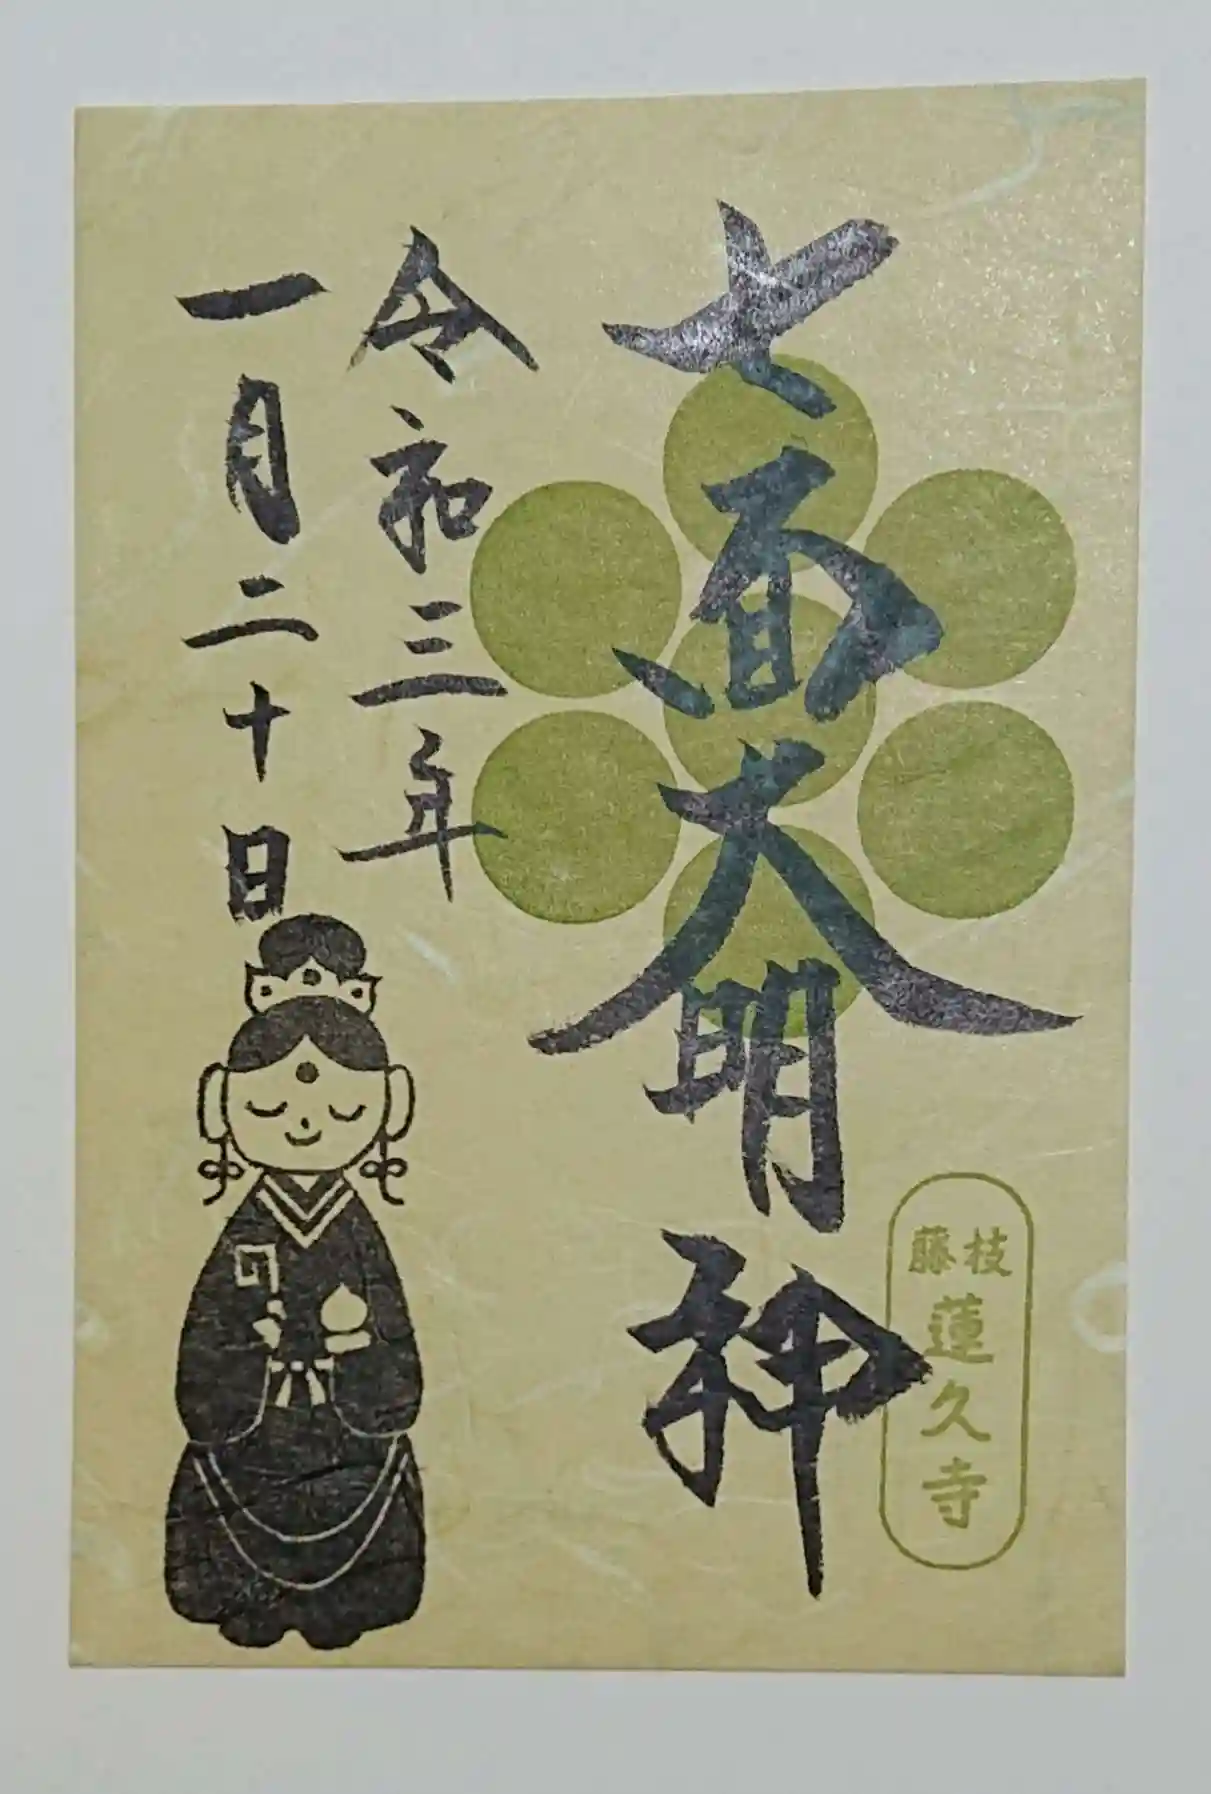 七面大明神
令和三年
一月二十日
藤枝
蓮久寺